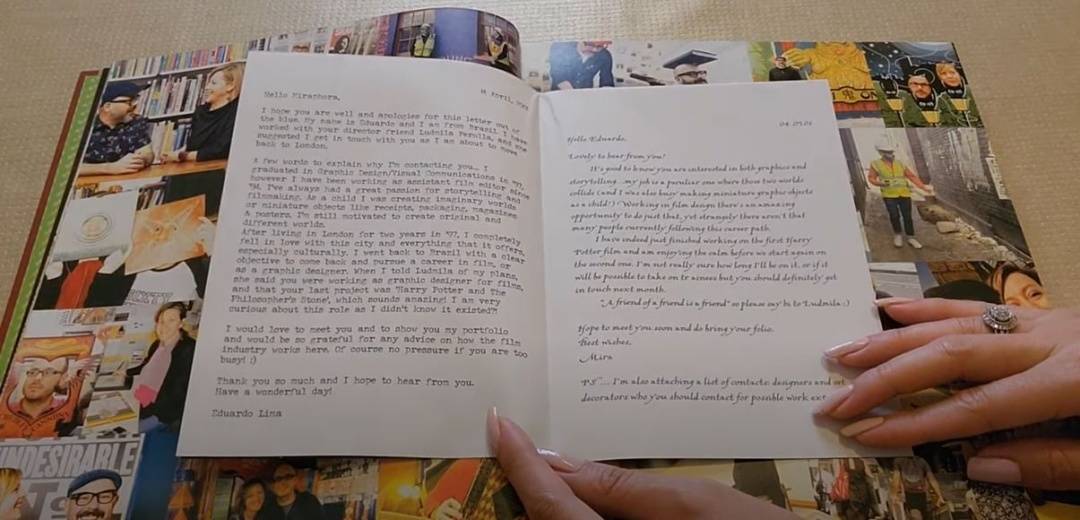 April,
Hello Miraphora,
I hope you are well and apologies for this letter out of
the blue. My name is Eduardo and I am from Brazil. I have
worked with your director friend Ludmila and she
suggested I get in touch with you as I am about to move
back to London.
A few words to explain why I'm contacting you... I
graduated in Graphic Design/Visual Communications in
however I have been working as assistant film editor since
I've always had a great passion for storytelling and
filmmaking. As a child I was creating imaginary worlds
or miniature objects like receipts, packaging, magazines
& posters. I'm still motivated to create original and
different worlds.
After living in London for two years in '97, I completely
fell in love with this city and everything that it offers,
especially culturally. I went back to Brazil with a clear
objective to come back and pursue a career in film, or
as a graphic designer. When I told Ludmila of my plans,
she said you were working as graphic designer for films,
and that your last project was 'Harry Potter and The
Philosopher's Stone', which sounds amazing! I am very
curious about this role as I didn't know it existed?!
I would love to meet you and to show you my portfolio
and would be so grateful for any advice on how the film
industry works here. Of course no pressure if you are too
busy! :)
Thank you so much and I hope to hear from you.
Have a wonderful day!
Eduardo Lima
04.05.01
Hello Eduardo,
Lovely to hear from you!
It's good to know you are interested in both graphics and
storytelling...my job is a peculiar one where those two worlds
collide (and I was also busy making miniature graphic objects
as a child!) Working in film design there's an amazing
opportunity to do just that, yet strangely there aren't that
many people currently following this career path.
I have indeed just finished working on the first Harry
Potter film and am enjoying the calm before we start again on
the second one. I'm not really sure how long I'll be on it, or if it
will be possible to take on trainees but you should definitely get
in touch next month.
"A friend of a friend is a friend" so please say hi to Ludmila :)
Hope to meet you soon and do bring your folio.
Best wishes,
Mira
PS"... I'm also attaching a list of contacts: designers and
decorators who you should contact for possible work
UNDESIRABLE